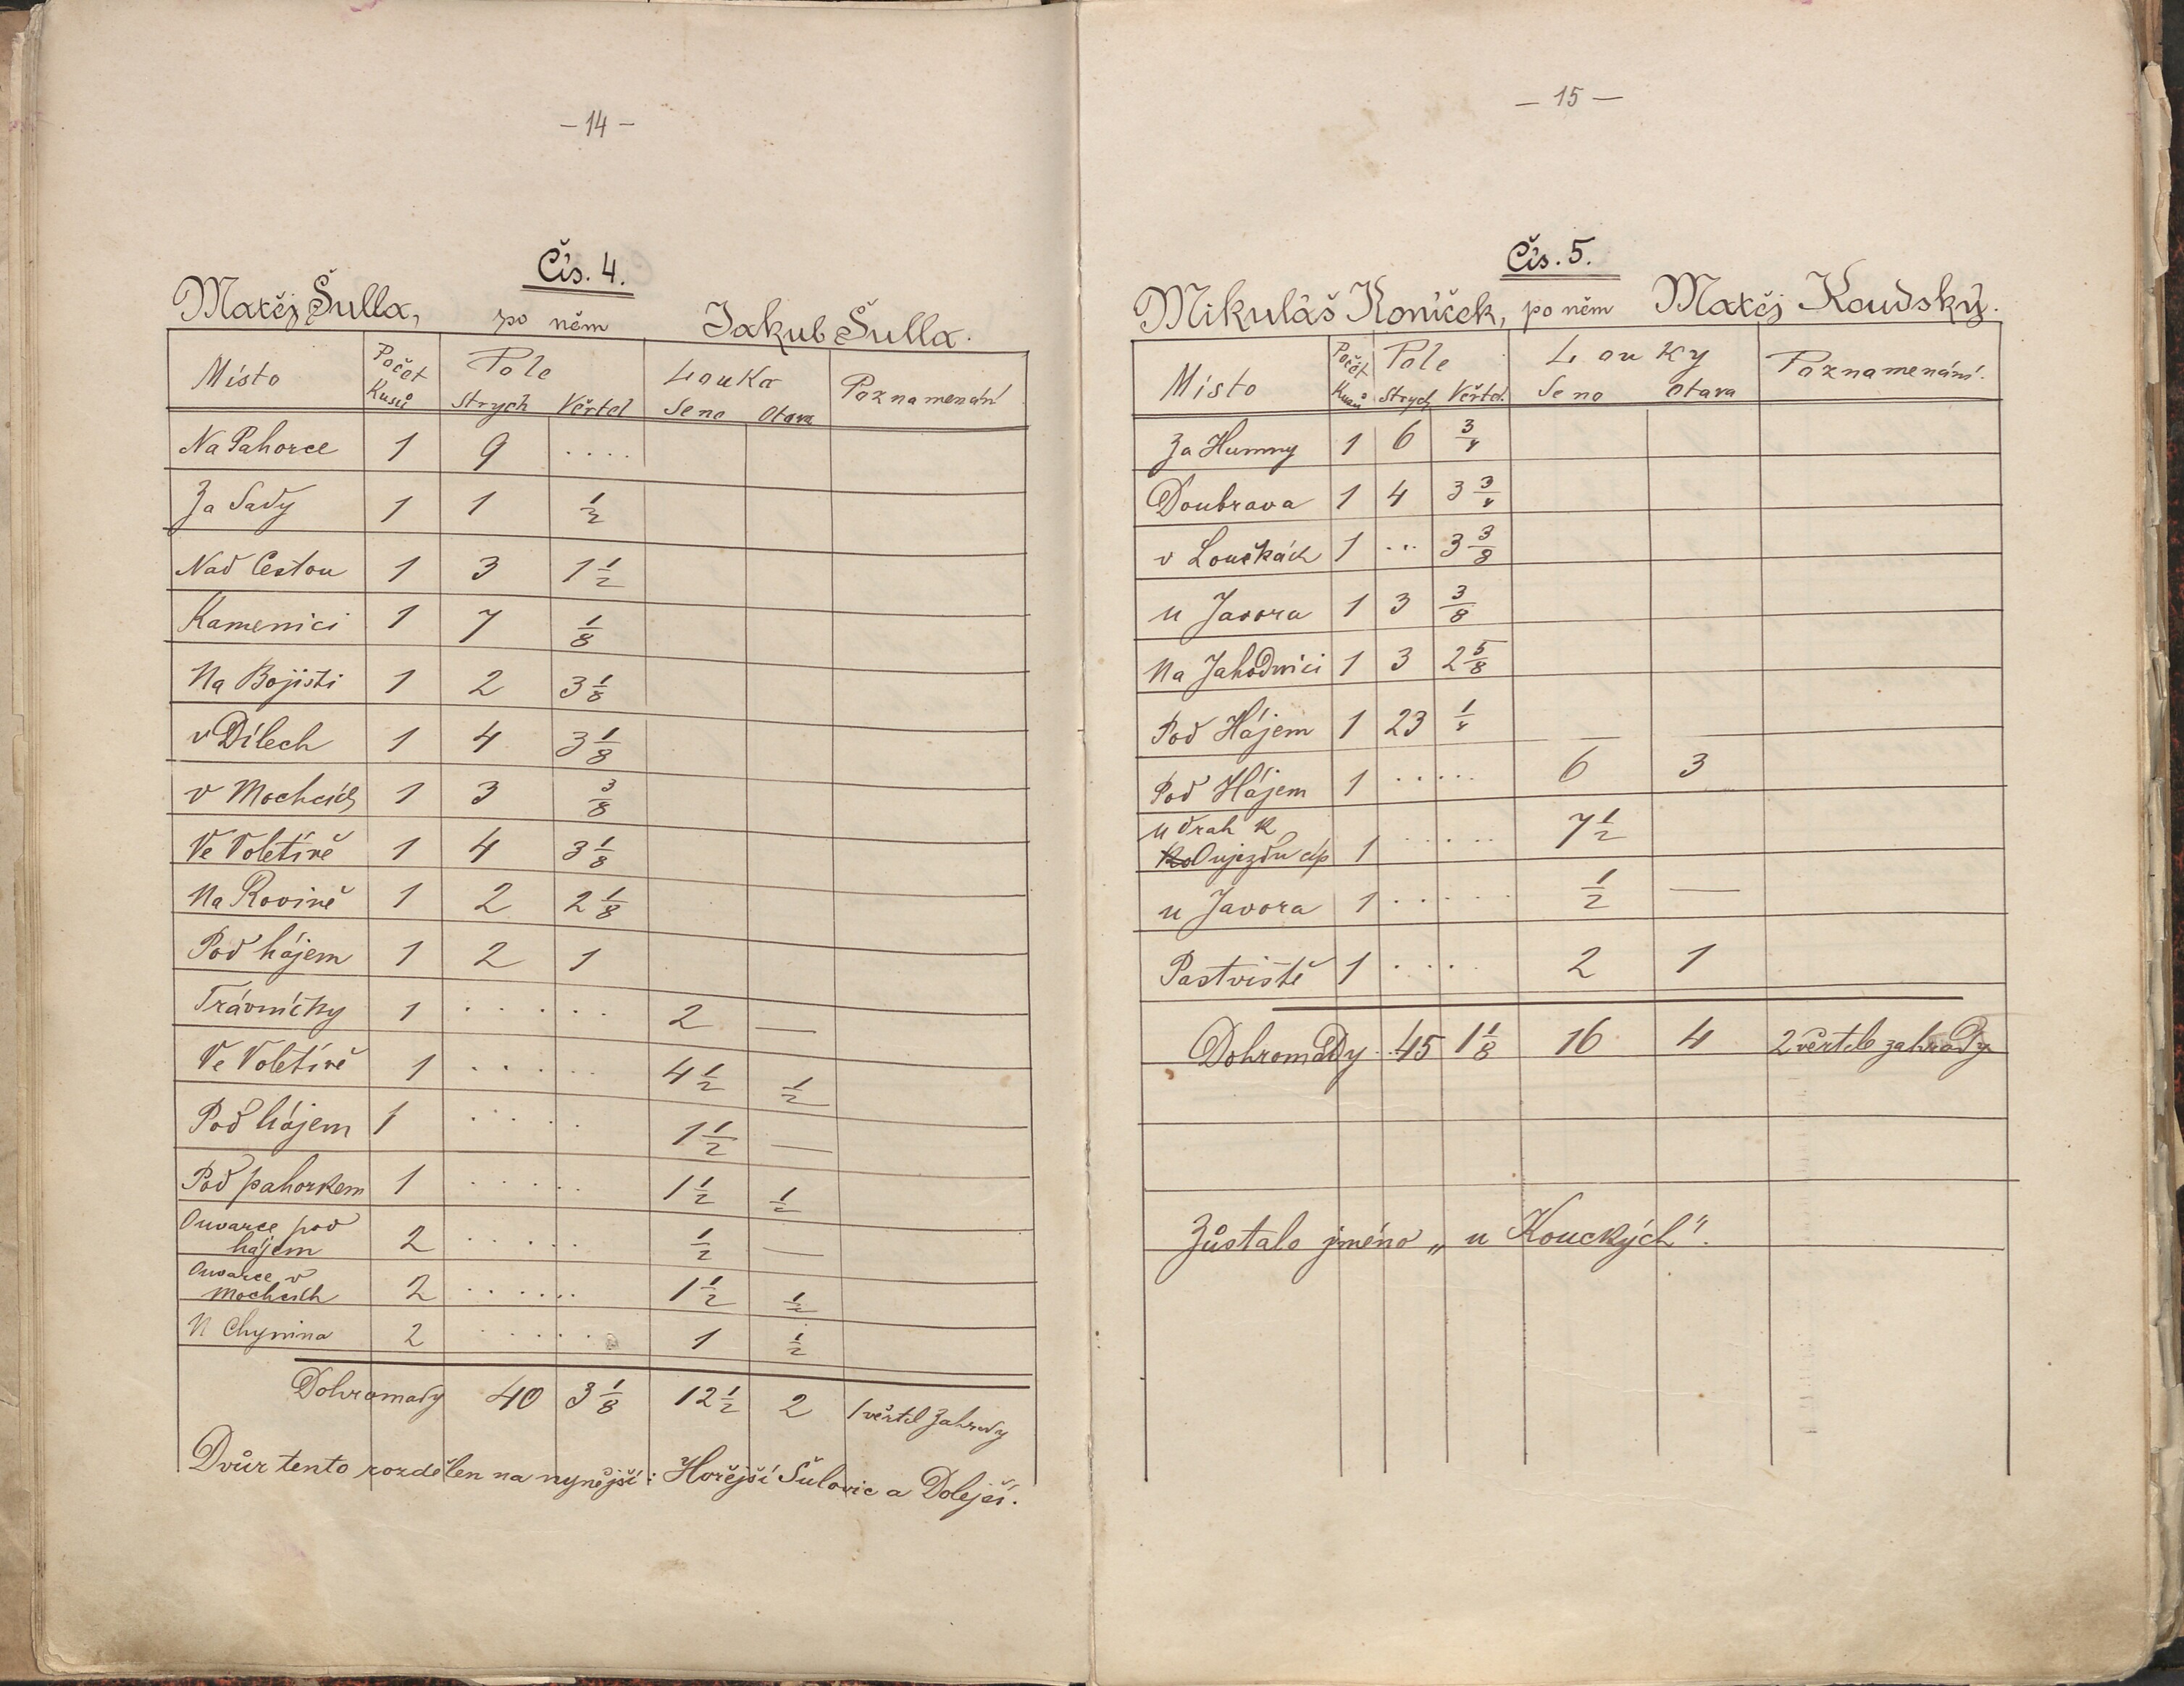 — 14 —
Čís. 4.
Matěj Šulla, po něm Jakub Šulla.
Místo Počet Kusů Pole Strych Věrtel Louka Seno Otava Poznamenání
Na Pahorce 1 9 ....
Za Sady 1 1 1/2
Nad Cestou 1 3 1 1/2
Kamenici 1 7 1/8
Na Bojišti 1 2 3 1/8
v Dílech 1 4 3 1/8
v Mochcích 1 3 3/8
Ve Voletíně 1 4 3 1/8
Na Rovině 1 2 2 1/8
Pod hájem 1 2 1
Trávníčky 1 ..... 2 —
Ve Voletíně 1 ..... 4 1/2 1/2
Pod hájem 1 .... 1 1/2 —
Pod pahorkem 1 ..... 1 1/2 1/2
Ouvarce pod
hájem 2 ..... 1/2 —
Ouvarce v
Mochcích 2 ...... 1 1/2 1/2
U Chynina 2 ..... 1 1/2
Dohromady 40 3 1/8 12 1/2 2 1 věrtel Zahrady
Dvůr tento rozdělen na nynější: Hořejší Šulovic a Dolejší.
— 15 —
Čís. 5.
Mikuláš Koníček, po něm Matěj Koudský.
Místo Počet Kusů Pole Strych Věrtel. Louky Seno Otava Poznamenání.
Za Humny 1 6 3/4
Doubrava 1 4 3 3/4
v Loučkách 1 ... 3 3/8
u Javora 1 3 3/8
Na Jahodnici 1 3 2 5/8
Pod Hájem 1 23 1/4 — —
Pod Hájem 1 ..... 6 3
u drah k
Oujezdu 1 ..... 7 1/2
u Javora 1 ..... 1/2 —
Pastviště 1 .... 2 1
Dohromady .. 45 1 1/8 16 4 2 věrtele zahrady
Zůstalo jméno „u Kouckých".